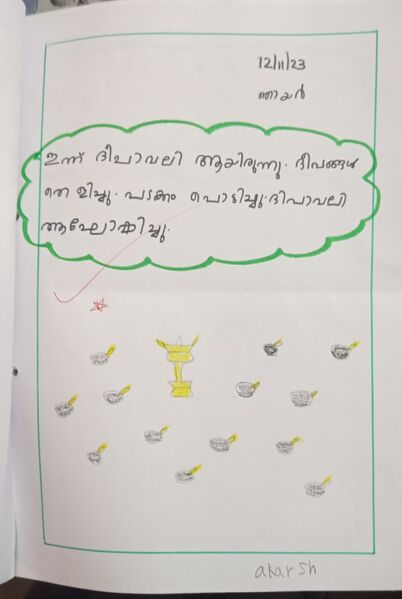 12/11/23
ഞായർ
ഇന്ന് ദീപാവലി ആയിരുന്നു. ദീപങ്ങൾ
തെളിച്ചു. പടക്കം പൊട്ടിച്ചു. ദിപാവലി
ആഘോഷിച്ചു.
akarsh